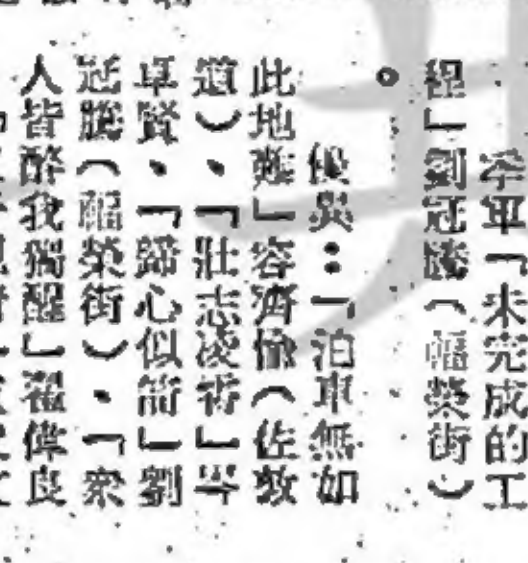 季軍「未完成的工
程」劉冠騰（福榮街）
。
優異：「泊車無如
此地難」容濟（佐敦
道）、「壯志凌霄」岑
卓賢、「歸心似箭」劉
冠騰（福榮街）、「衆
人皆醉我獨醒」翟偉良